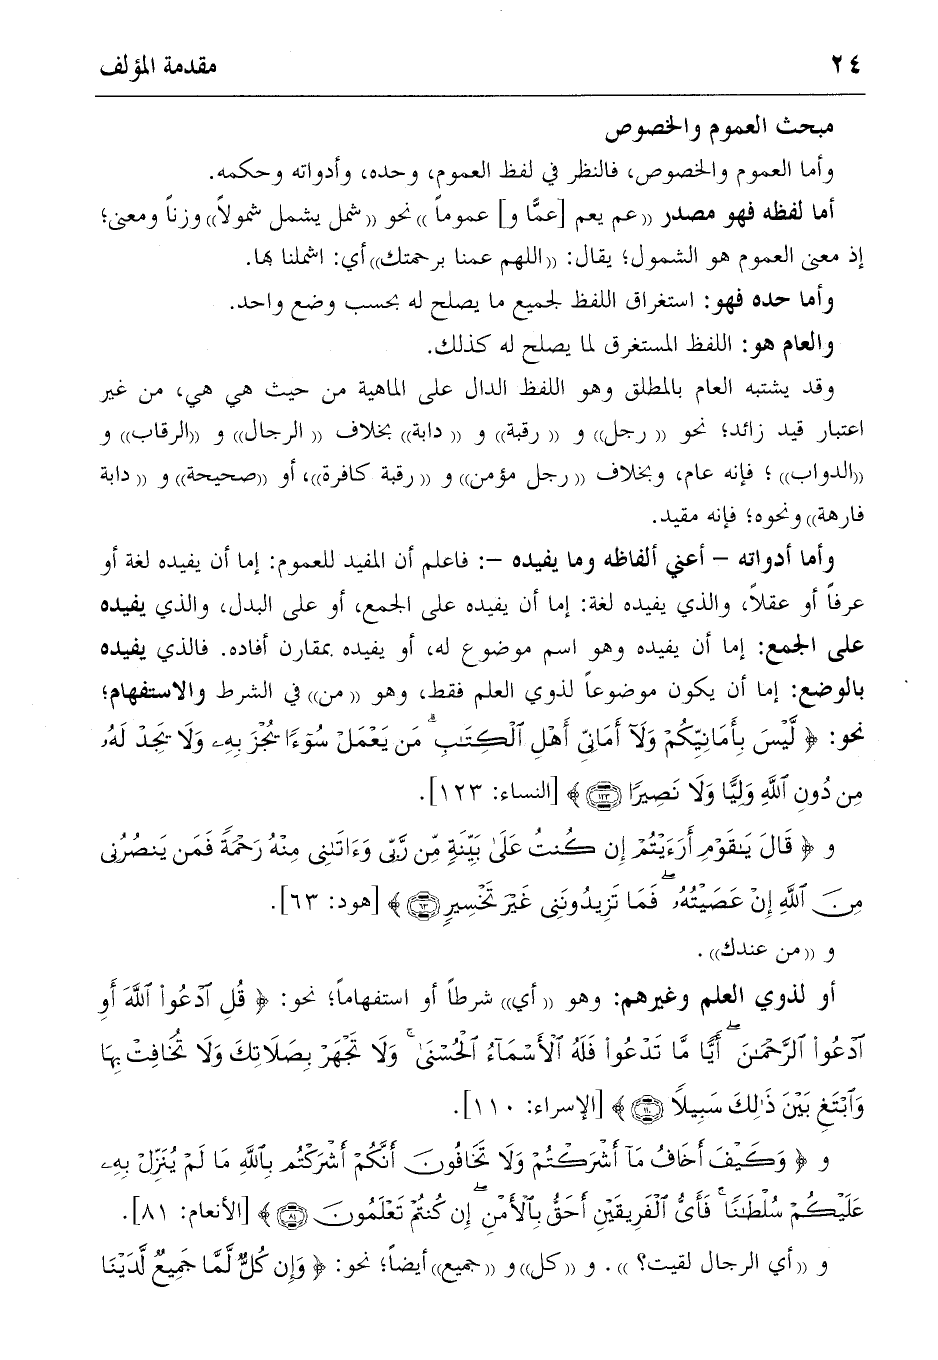 ٢٤
مقدمة المؤلف
مبحث العموم والخصوص
وأما العموم والخصوص، فالنظر في لفظ العموم، وحده، وأدواته وحكمه.
أما لفظه فهو مصدر ((عم يعم [عمًّا و] عموماً)) نحو ((شمل يشمل شمولاً)) وزناً ومعنى؛
إذ معنى العموم هو الشمول؛ يقال: ((اللهم عمنا برحمتك)) أي: اشملنا بها.
وأما حده فهو: استغراق اللفظ لجميع ما يصلح له بحسب وضع واحد.
والعام هو: اللفظ المستغرق لما يصلح له كذلك.
وقد يشتبه العام بالمطلق وهو اللفظ الدال على الماهية من حيث هي هي، من غير
اعتبار قيد زائد؛ نحو ((رجل)) و ((رقبة)) و ((دابة)) بخلاف ((الرجال)) و ((الرقاب)) و
((الدواب)) ؛ فإنه عام، وبخلاف ((رجل مؤمن)) و ((رقبة كافرة))، أو ((صحيحة)) و ((دابة
فارهة)) ونحوه؛ فإنه مقيد.
وأما أدواته – أعني ألفاظه وما يفيده –: فاعلم أن المفيد للعموم: إما أن يفيده لغة أو
عرفاً أو عقلاً، والذي يفيده لغة: إما أن يفيده على الجمع، أو على البدل، والذي يفيده
على الجمع: إما أن يفيده وهو اسم موضوع له، أو يفيده بمقارن أفاده. فالذي يفيده
بالوضع: إما أن يكون موضوعاً لذوي العلم فقط، وهو ((من)) في الشرط والاستفهام؛
نحو: ﴿ لَّيْسَ بِأَمَانِيِّكُمْ وَلَآ أَمَانِيِّ أَهْلِ ٱلْكِتَٰبِ ۗ مَن يَعْمَلْ سُوٓءًا يُجْزَ بِهِۦ وَلَا يَجِدْ لَهُۥ
مِن دُونِ ٱللَّهِ وَلِيًّا وَلَا نَصِيرًا ١٢٣ ﴾ [النساء: ١٢٣].
و ﴿ قَالَ يَٰقَوْمِ أَرَءَيْتُمْ إِن كُنتُ عَلَىٰ بَيِّنَةٍ مِّن رَّبِّى وَءَاتَىٰنِى مِنْهُ رَحْمَةً فَمَن يَنصُرُنِى
مِنَ ٱللَّهِ إِنْ عَصَيْتُهُۥ ۖ فَمَا تَزِيدُونَنِى غَيْرَ تَخْسِيرٍ ٦٣ ﴾ [هود: ٦٣].
و ((من عندك)) .
أو لذوي العلم وغيرهم: وهو ((أي)) شرطاً أو استفهاماً؛ نحو: ﴿ قُلِ ٱدْعُوا۟ ٱللَّهَ أَوِ
ٱدْعُوا۟ ٱلرَّحْمَٰنَ ۖ أَيًّا مَّا تَدْعُوا۟ فَلَهُ ٱلْأَسْمَآءُ ٱلْحُسْنَىٰ ۚ وَلَا تَجْهَرْ بِصَلَاتِكَ وَلَا تُخَافِتْ بِهَا
وَٱبْتَغِ بَيْنَ ذَٰلِكَ سَبِيلًا ١١٠ ﴾ [الإسراء: ١١٠].
و ﴿ وَكَيْفَ أَخَافُ مَآ أَشْرَكْتُمْ وَلَا تَخَافُونَ أَنَّكُمْ أَشْرَكْتُم بِٱللَّهِ مَا لَمْ يُنَزِّلْ بِهِۦ
عَلَيْكُمْ سُلْطَٰنًا ۚ فَأَىُّ ٱلْفَرِيقَيْنِ أَحَقُّ بِٱلْأَمْنِ ۖ إِن كُنتُمْ تَعْلَمُونَ ٨١ ﴾ [الأنعام: ٨١].
و ((أي الرجال لقيت؟ )). و ((كل)) و ((جميع)) أيضاً؛ نحو: ﴿ وَإِن كُلٌّ لَّمَّا جَمِيعٌ لَّدَيْنَا